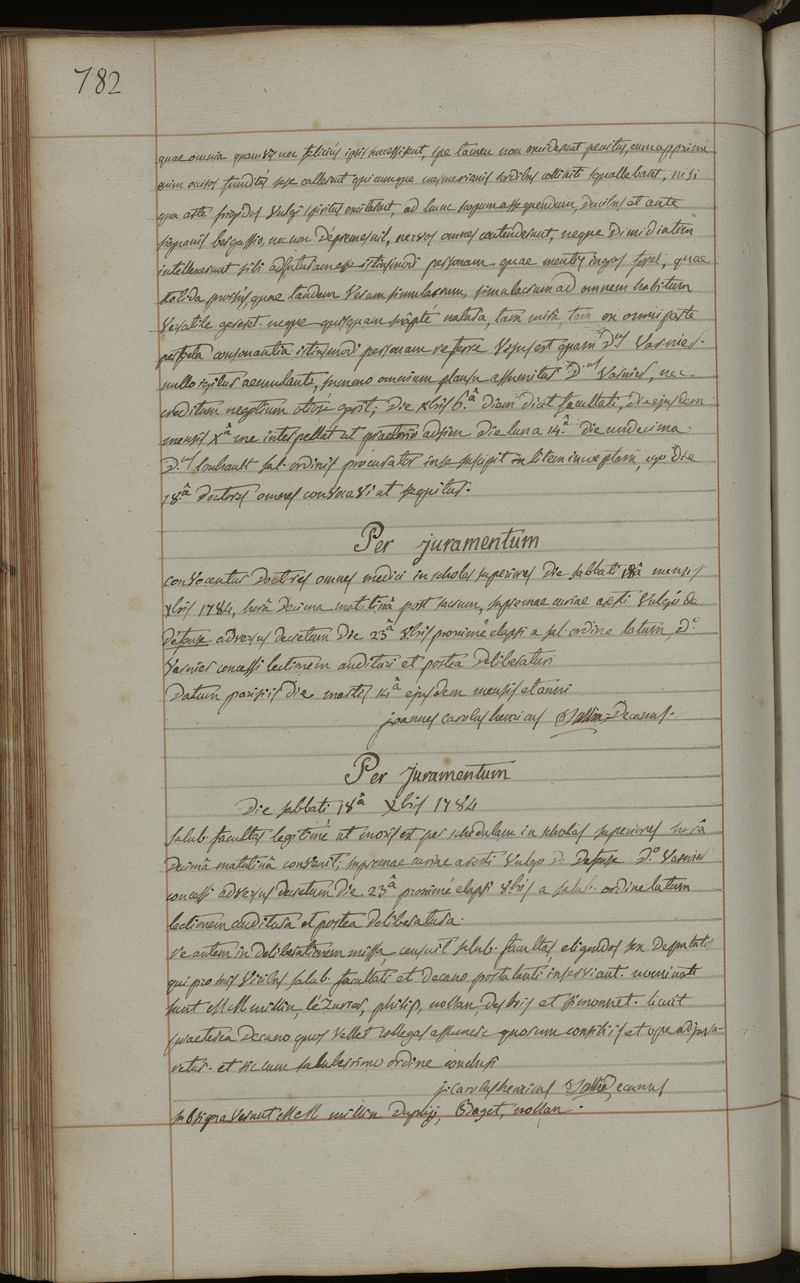 782
quae omnia quamvis nec feliciùs ipsis successissent, spe tamen non exciderunt penitus, cum apprime
enim omnes funditùs sese callerent quicumque mesmerianis sordibus colliniti squallebant, nisi
qua arte frigidos vulgi spiritus excitarent, ad hunc scopum assequendum, ducibus et ante
signanis bergassio, nec non d'épremesnil, nervos omnes contenderunt, neque dimidiatim
intellexerunt sibi adfuturam esse istiusmodi personam quae mentis inops foret, quae
stolida prorsùs, quae tandem verum simulacrum, simulacrum ad omnem habitum
versatile gereret. neque quisquam suâpte naturâ, tam mirâ, tam ex omni parte
perfecta consonantia istiusmodi personam referre visus est quam D.us Varnier.
nullo igitur aemulante, summo omnium plausu assumitur D.us Varnier, nec
creditum negotium otiosè gerit; die xbris 6.â diem dicit facultati, die ejusdem
mensis Xâ me interpellat ut praetorio adsim die luna 14.â die undecima
D.us Souhault sal. ordinis procurator in se suscipit litem inceptam, ego die
18.â doctores omnes convocavi ut sequitur.
Per juramentum
convocentur doctores omnes medici in scholas superiores die sabbati 18â mensis
xbris 1784, horâ decima matutinâ post sacrum, supremae curiae aresti vulgò de
défense adversus decretum die 23â 8bris proximè elapsi a sal. ordine latum, d.o
Varnier concessi lectionem audituri et postea deliberaturi
Datum parisiis die martis 14â ejusdem mensis et anni
joannes carolus henricus Sallin Decanus.
Per Juramentum
Die sabbati 18â Xbris 1784
Salub. facultas legitimè ut moris est per schedulam in scholas superiores horâ
decimâ matutinâ convenit; supremae curiae aresti vulgo de Defense d.o Varnier
concessi adversus decretum die 23â proximè elapsi 8bris a salub. ordine latum
lectionem auditura et postea deliberatura.
re autem in deliberationem missa, censuit salub. facultas, eligendos sex deputatos
qui pro suis viribus salub. facultati et decano postulanti inserviant. nominati
sunt MM millin, lézurier, philip, nollan, des bois et simonnet. licuit
praeterea decano quos vellet collegas assumere quorum consiliis et ope adjuva-
retur. et sic cum saluberrimo ordine conclusi
j. carolus henricus Sallin Decanus
subsignaverunt MM millin Dupuy, Baget, nollan.